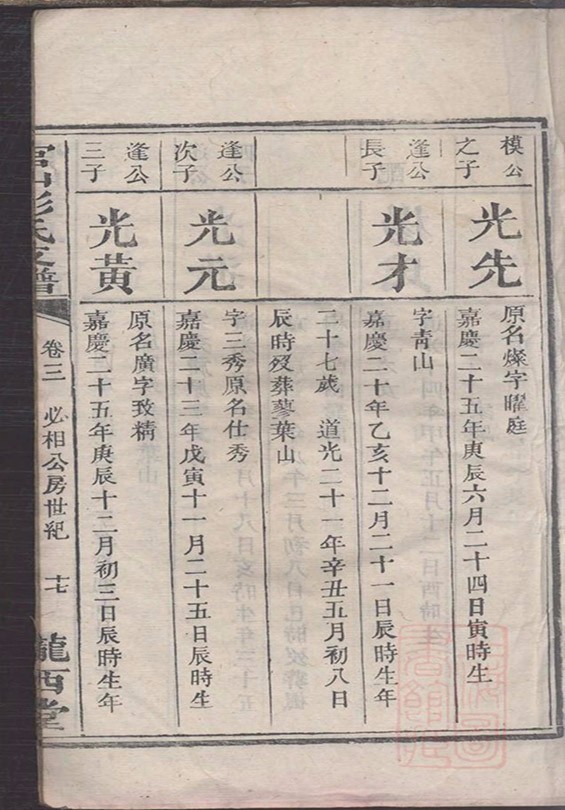 模公
之子
光先
原名燦字曜庭
嘉慶二十五年庚辰六月二十四日寅時生
逢公
長子
光才
字青山
嘉慶二十年乙亥十二月二十一日辰時生年
三十七歲　道光二十一年辛丑五月初八日
辰時歿葬蓼葉山
逢公
次子
光元
字三秀原名仕秀
嘉慶二十三年戊寅十一月二十五日辰時生
逢公
三子
光黃
原名廣字致精
嘉慶二十五年庚辰十二月初三日辰時生年
彭氏支譜
卷三　必相公房世紀　十七
龍西堂